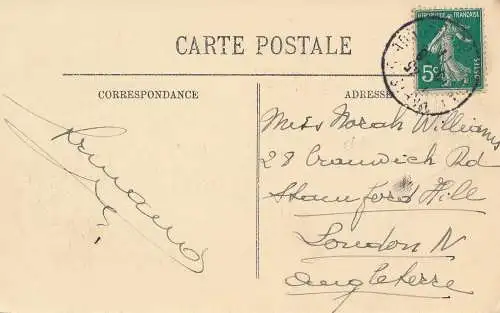 CARTE POSTALE
REPUBLIQUE FRANÇAISE
5c
POSTES
CORRESPONDANCE
ADRESSE
Armand
Miss Norah Williams
28 Cranwich Rd
Stamford Hill
London N
Angleterre